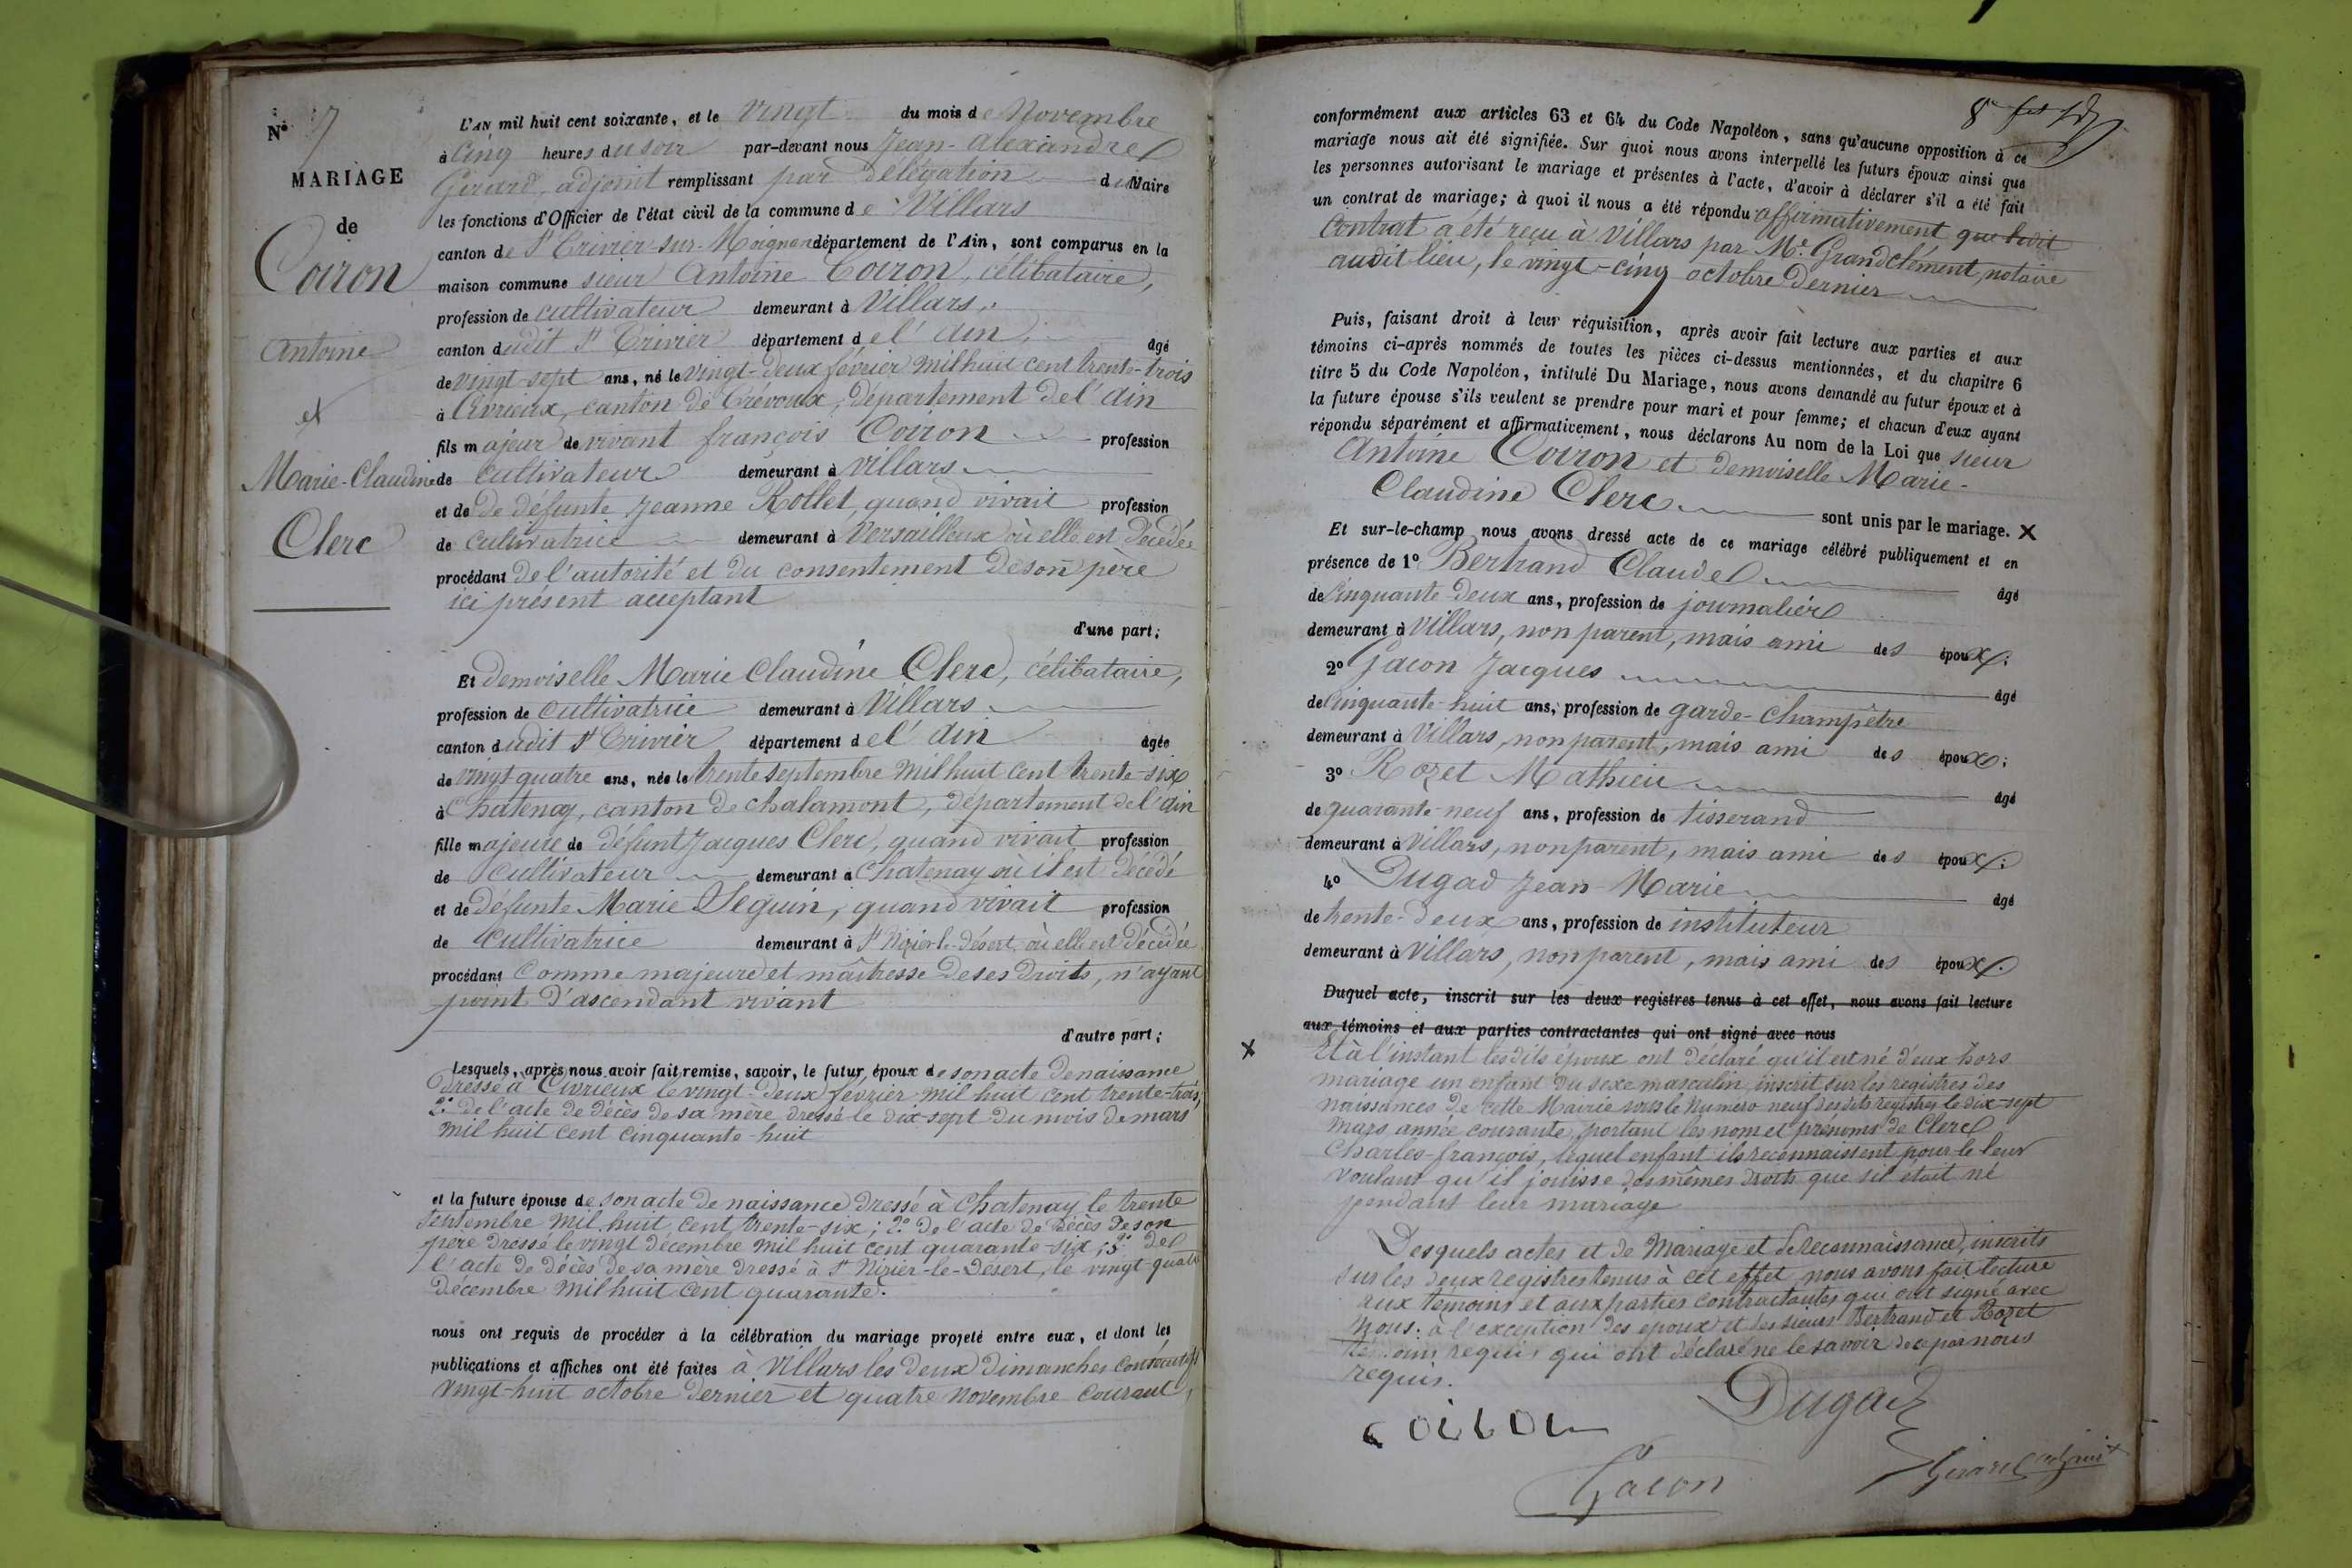 N° 7
MARIAGE
de
Coiron
Antoine
et
Marie-Claudine
Clerc
L'AN mil huit cent soixante, et le vingt du mois de Novembre
à Cinq heures du soir par-devant nous Jean-Alexandre
Girard, adjoint remplissant par délégation du Maire
les fonctions d'Officier de l'état civil de la commune de Villars
canton de St Trivier-sur-Moignans département de l'Ain, sont comparus en la
maison commune sieur Antoine Coiron, célibataire,
profession de cultivateur demeurant à Villars,
canton dudit St Trivier département de l'ain, âgé
de vingt-sept ans, né le vingt-deux février mil huit cent trente-trois
à Civrieux, canton de Trévoux, département de l'ain
fils majeur de vivant françois Coiron profession
de cultivateur demeurant à villars
et de de défunte Jeanne Rollet, quand vivait profession
de cultivatrice demeurant à Versailleux où elle est décédée
procédant de l'autorité et du consentement de son père
ici présent acceptant
d'une part;
Et demoiselle Marie Claudine Clerc, célibataire,
profession de cultivatrice demeurant à Villars
canton dudit St Trivier département de l'ain âgée
de vingt quatre ans, née le trente septembre mil huit cent trente-six
à Chatenay, canton de chalamont, département de l'ain
fille majeure de défunt Jacques Clerc, quand vivait profession
de cultivateur demeurant à Chatenay où il est décédé
et de défunte Marie Seguin, quand vivait profession
de cultivatrice demeurant à St Nizier-le-désert, où elle est décédée
procédant comme majeure et maîtresse de ses droits, n'ayant
point d'ascendant vivant
d'autre part;
Lesquels, après nous avoir fait remise, savoir, le futur époux de son acte de naissance
dressé à Civrieux le vingt-deux février mil huit cent trente-trois;
2° de l'acte de décès de sa mère dressé le dix-sept du mois de mars
mil huit cent cinquante-huit
et la future épouse de son acte de naissance dressé à Chatenay le trente
septembre mil huit cent trente-six; 2° de l'acte de décès de son
père dressé le vingt décembre mil huit cent quarante-six; 3° de
l'acte de décès de sa mère dressé à St Nizier-le-Désert, le vingt quatre
décembre mil huit cent quarante.
nous ont requis de procéder à la célébration du mariage projeté entre eux, et dont les
publications et affiches ont été faites à Villars les deux dimanches consécutifs
vingt-huit octobre dernier et quatre novembre courant,
8e
conformément aux articles 63 et 64 du Code Napoléon, sans qu'aucune opposition à ce
mariage nous ait été signifiée. Sur quoi nous avons interpellé les futurs époux ainsi que
les personnes autorisant le mariage et présentes à l'acte, d'avoir à déclarer s'il a été fait
un contrat de mariage; à quoi il nous a été répondu affirmativement que ledit
contrat a été reçu à Villars par Me Grandclément, notaire
audit lieu, le vingt-cinq octobre dernier
Puis, faisant droit à leur réquisition, après avoir fait lecture aux parties et aux
témoins ci-après nommés de toutes les pièces ci-dessus mentionnées, et du chapitre 6
titre 5 du Code Napoléon, intitulé Du Mariage, nous avons demandé au futur époux et à
la future épouse s'ils veulent se prendre pour mari et pour femme; et chacun d'eux ayant
répondu séparément et affirmativement, nous déclarons Au nom de la Loi que sieur
Antoine Coiron et demoiselle Marie-
Claudine Clerc sont unis par le mariage. X
Et sur-le-champ nous avons dressé acte de ce mariage célébré publiquement et en
présence de 1° Bertrand Claude âgé
de cinquante-deux ans, profession de journalier
demeurant à Villars, non parent, mais ami des époux;
2° Gacon Jacques âgé
de cinquante-huit ans, profession de garde-champêtre
demeurant à Villars, non parent, mais ami des époux;
3° Rozet Mathieu âgé
de quarante-neuf ans, profession de tisserand
demeurant à Villars, non parent, mais ami des époux;
4° Dugad Jean-Marie âgé
de trente-deux ans, profession de instituteur
demeurant à Villars, non parent, mais ami des époux.
Duquel acte, inscrit sur les deux registres tenus à cet effet, nous avons fait lecture
aux témoins et aux parties contractantes qui ont signé avec nous
X Et à l'instant lesdits époux ont déclaré qu'il est né d'eux hors
mariage un enfant du sexe masculin, inscrit sur les registres des
naissances de cette Mairie sous le numéro neuf desdits registres le dix-sept
mars année courante, portant les nom et prénoms de Clerc
Charles-françois, lequel enfant ils reconnaissent pour le leur
voulant qu'il jouisse des mêmes droits que s'il était né
pendant leur mariage
Desquels actes et de Mariage et de reconnaissance, inscrits
sur les deux registres tenus à cet effet nous avons fait lecture
aux témoins et aux parties contractantes qui ont signé avec
nous: à l'exception des époux et des sieurs Bertrand et Rozet
témoins requis qui ont déclaré ne le savoir de ce par nous
requis.
coiron
Dugad
Gacon
Girard adjoint